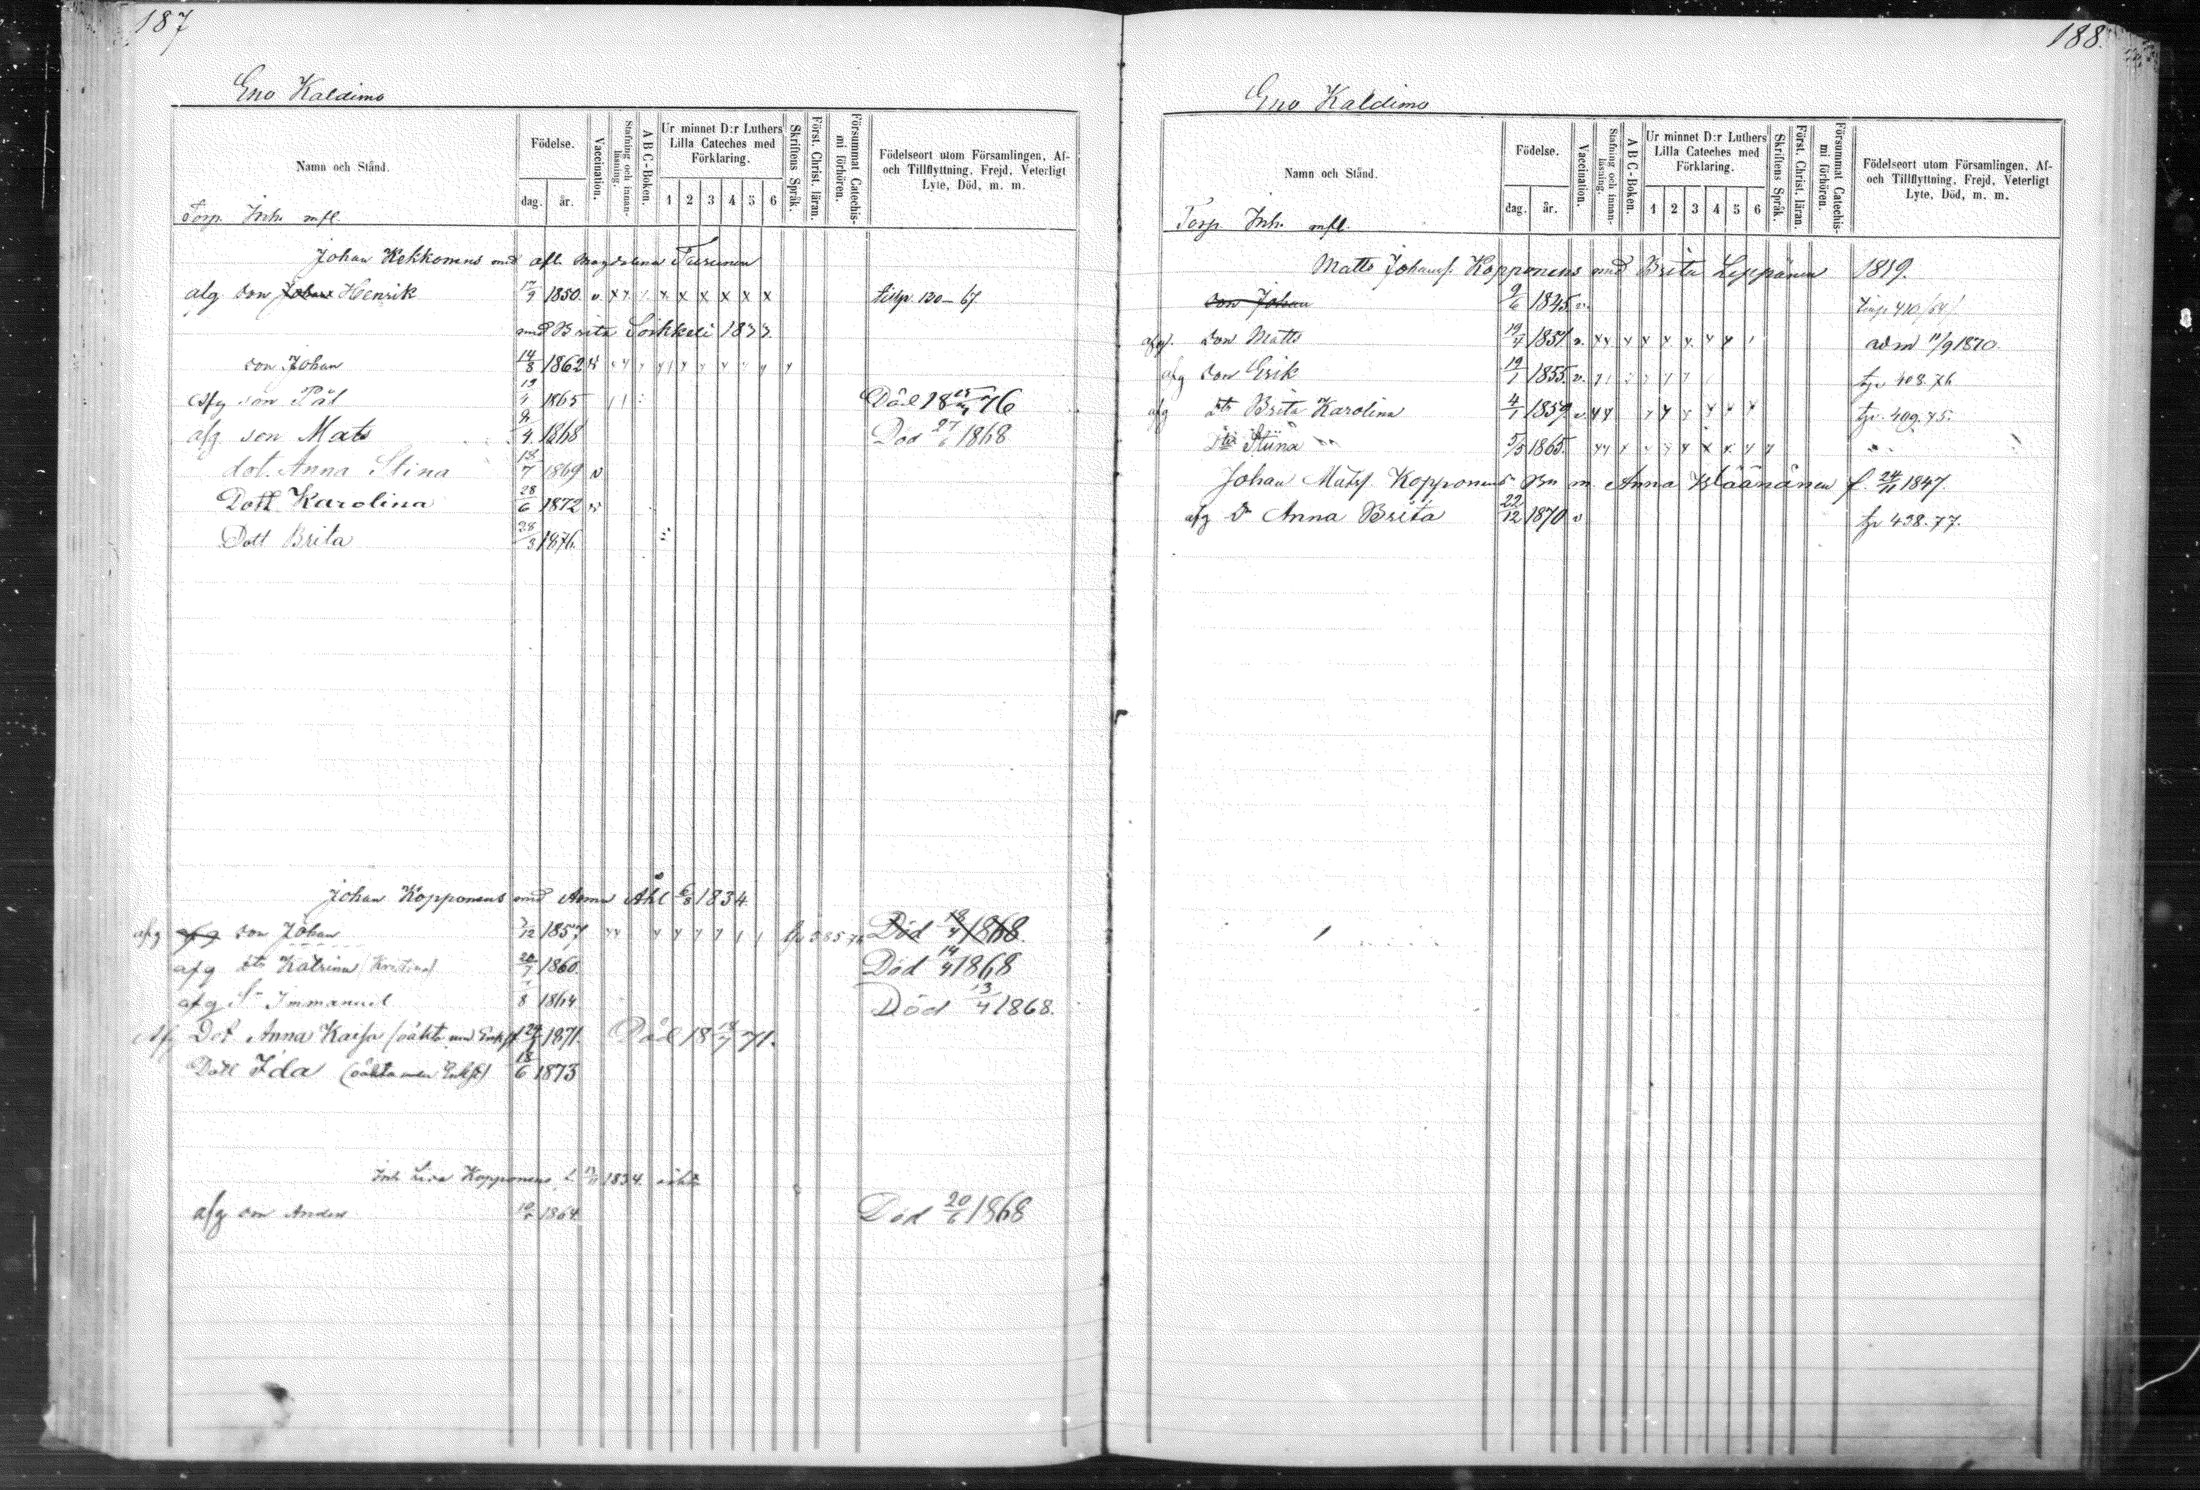 187
Eno Kaldimo
Namn och Stånd.
Födelse.
dag. år.
Vaccination.
Stafning och innanläsning.
A B C-Boken.
Ur minnet D:r Luthers Lilla Cateches med Förklaring.
1 2 3 4 5 6
Skriftens Språk.
Först. Christ. läran.
Försummat Catechismi förhören.
Födelseort utom Församlingen, Af- och Tillflyttning, Frejd, Veterligt Lyte, Död, m. m.
Torp. Inh. mfl.
Johan Kekkonens med afl. Magdalena Turunen
afg son Johan Henrik 17/9 1850. v. x x x x x x x x
med Brita Soikkeli 1833.
son Johan 14/8 1862
Afg son Pål 1865 Död 18 76
afg son Mats 4 1868 Död 27/6 1868
dot. Anna Stina 18/7 1869 v
Dott Karolina 28/6 1872 v
Dott Brita 28/3 1876.
Johan Kopponens med Anna Ahl 6/8 1834
afg afg son Johan /12 1857 Död 18/4 1868.
afg dtr Katrina (Kristina) 20/7 1860. Död 14/4 1868
afg Sn Immanuel 8 1864 Död 13/4 1868.
Af Dot Anna Kaisa 1871. Död 18 71.
Dott Ida 18/6 1873
Inh Lisa Kopponens 1834.
afg son Anders 1864 Död 20/6 1868
188.
Eno Kaldimo
Namn och Stånd.
Födelse.
dag. år.
Vaccination.
Stafning och innanläsning.
A B C-Boken.
Ur minnet D:r Luthers Lilla Cateches med Förklaring.
1 2 3 4 5 6
Skriftens Språk.
Först. Christ. läran.
Försummat Catechismi förhören.
Födelseort utom Församlingen, Af- och Tillflyttning, Frejd, Veterligt Lyte, Död, m. m.
Torp Inh. mfl.
Matts Johans. Kopponens med Brita Leppänen 1819.
son Johan 9/6 1845 v.
afg. son Matts 19/4 1851 v. adm 11/9 1870.
afg son Erik 19/1 1855 v. tp 408.76
afg dtr Brita Karolina 4/1 1859 v. tp. 409.75.
dtr Stiina 5/5 1865.
Johan Mats. Kopponens m. Anna Väänänen f. 24/11 1847.
afg Dr Anna Brita 22/12 1870 v tp 438.77.